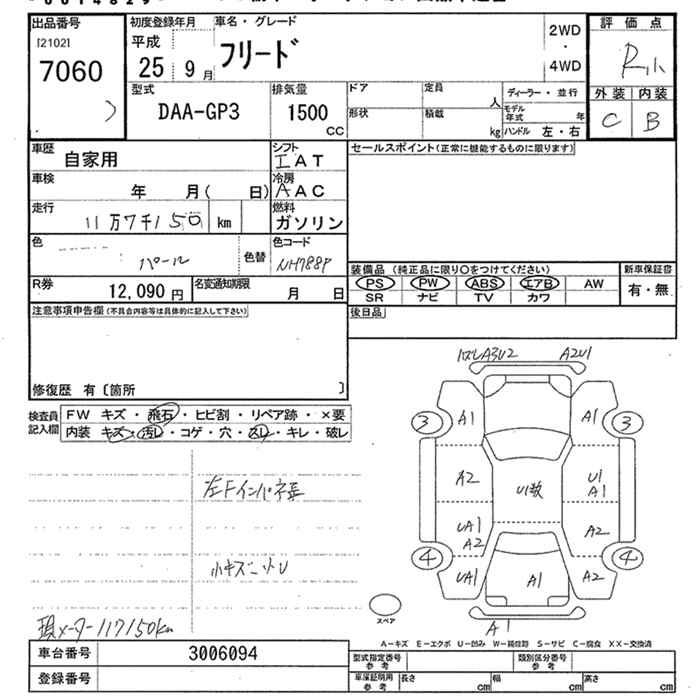 出品番号 初度登録年月 車名・グレード 2WD・4WD 評価点
[2102]
7060
平成
25 9月
フリード
R小
型式 排気量 ドア 定員 人 ディーラー・並行 外装 内装
DAA-GP3 1500 CC
形状 積載 kg モデル年式 年
ハンドル 左・右
C B
車歴 自家用
シフト
IAT
セールスポイント(正常に機能するものに限ります)
車検 年 月( 日)
冷房
AAC
走行 11万7千150 km
燃料
ガソリン
色 パール 色替
色コード
NH788P
装備品 (純正品に限り○をつけてください) 新車保証書
PS PW ABS エアB AW 有・無
SR ナビ TV カワ
R券 12,090円 名変通知期限 月 日
注意事項申告欄(不具合内容等は具体的に記入して下さい)
後日品
修復歴 有〔箇所 〕
検査員記入欄
FW キズ・飛石・ヒビ割・リペア跡・×要
内装 キズ・汚レ・コゲ・穴・スレ・キレ・破レ
左Fインパネ
小キズ 小U
現メーター117150km
A3U2 A2U1
3 A1 A1 3
A2 U1数 U1
A1
UA1
A2
A2
4 UA1 A1 A2 4
A1
スペア
A-キズ E-エクボ U-凹み W-補修跡 S-サビ C-腐食 XX-交換済
車台番号 3006094
型式指定番号 参考 類別区分番号 参考
登録番号
車庫証明用 参考 長さ cm 幅 cm 高さ cm